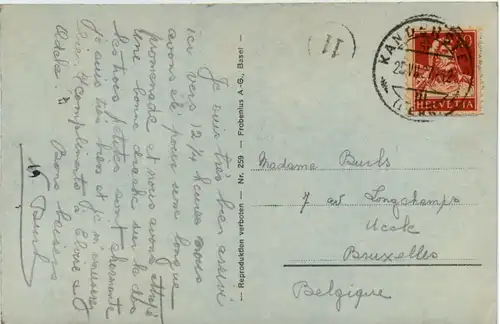 Je suis très bien arrivé
ici vers 12 ¼ heures nous
avons été pour une longue
promenade et nous avons attrapé
une bonne drache sur le dos
les trois petites sont charmantes
Je suis très bien et je m'amuse
bien. Compliments à Elvire et
Odela.
Bons baisers
Burls
Reproduktion verboten — Nr. 259 — Frobenius A.-G., Basel
11
KANDE
HELVETIA
Madame Burls
7 av Longchamps
Uccle
Bruxelles
Belgique